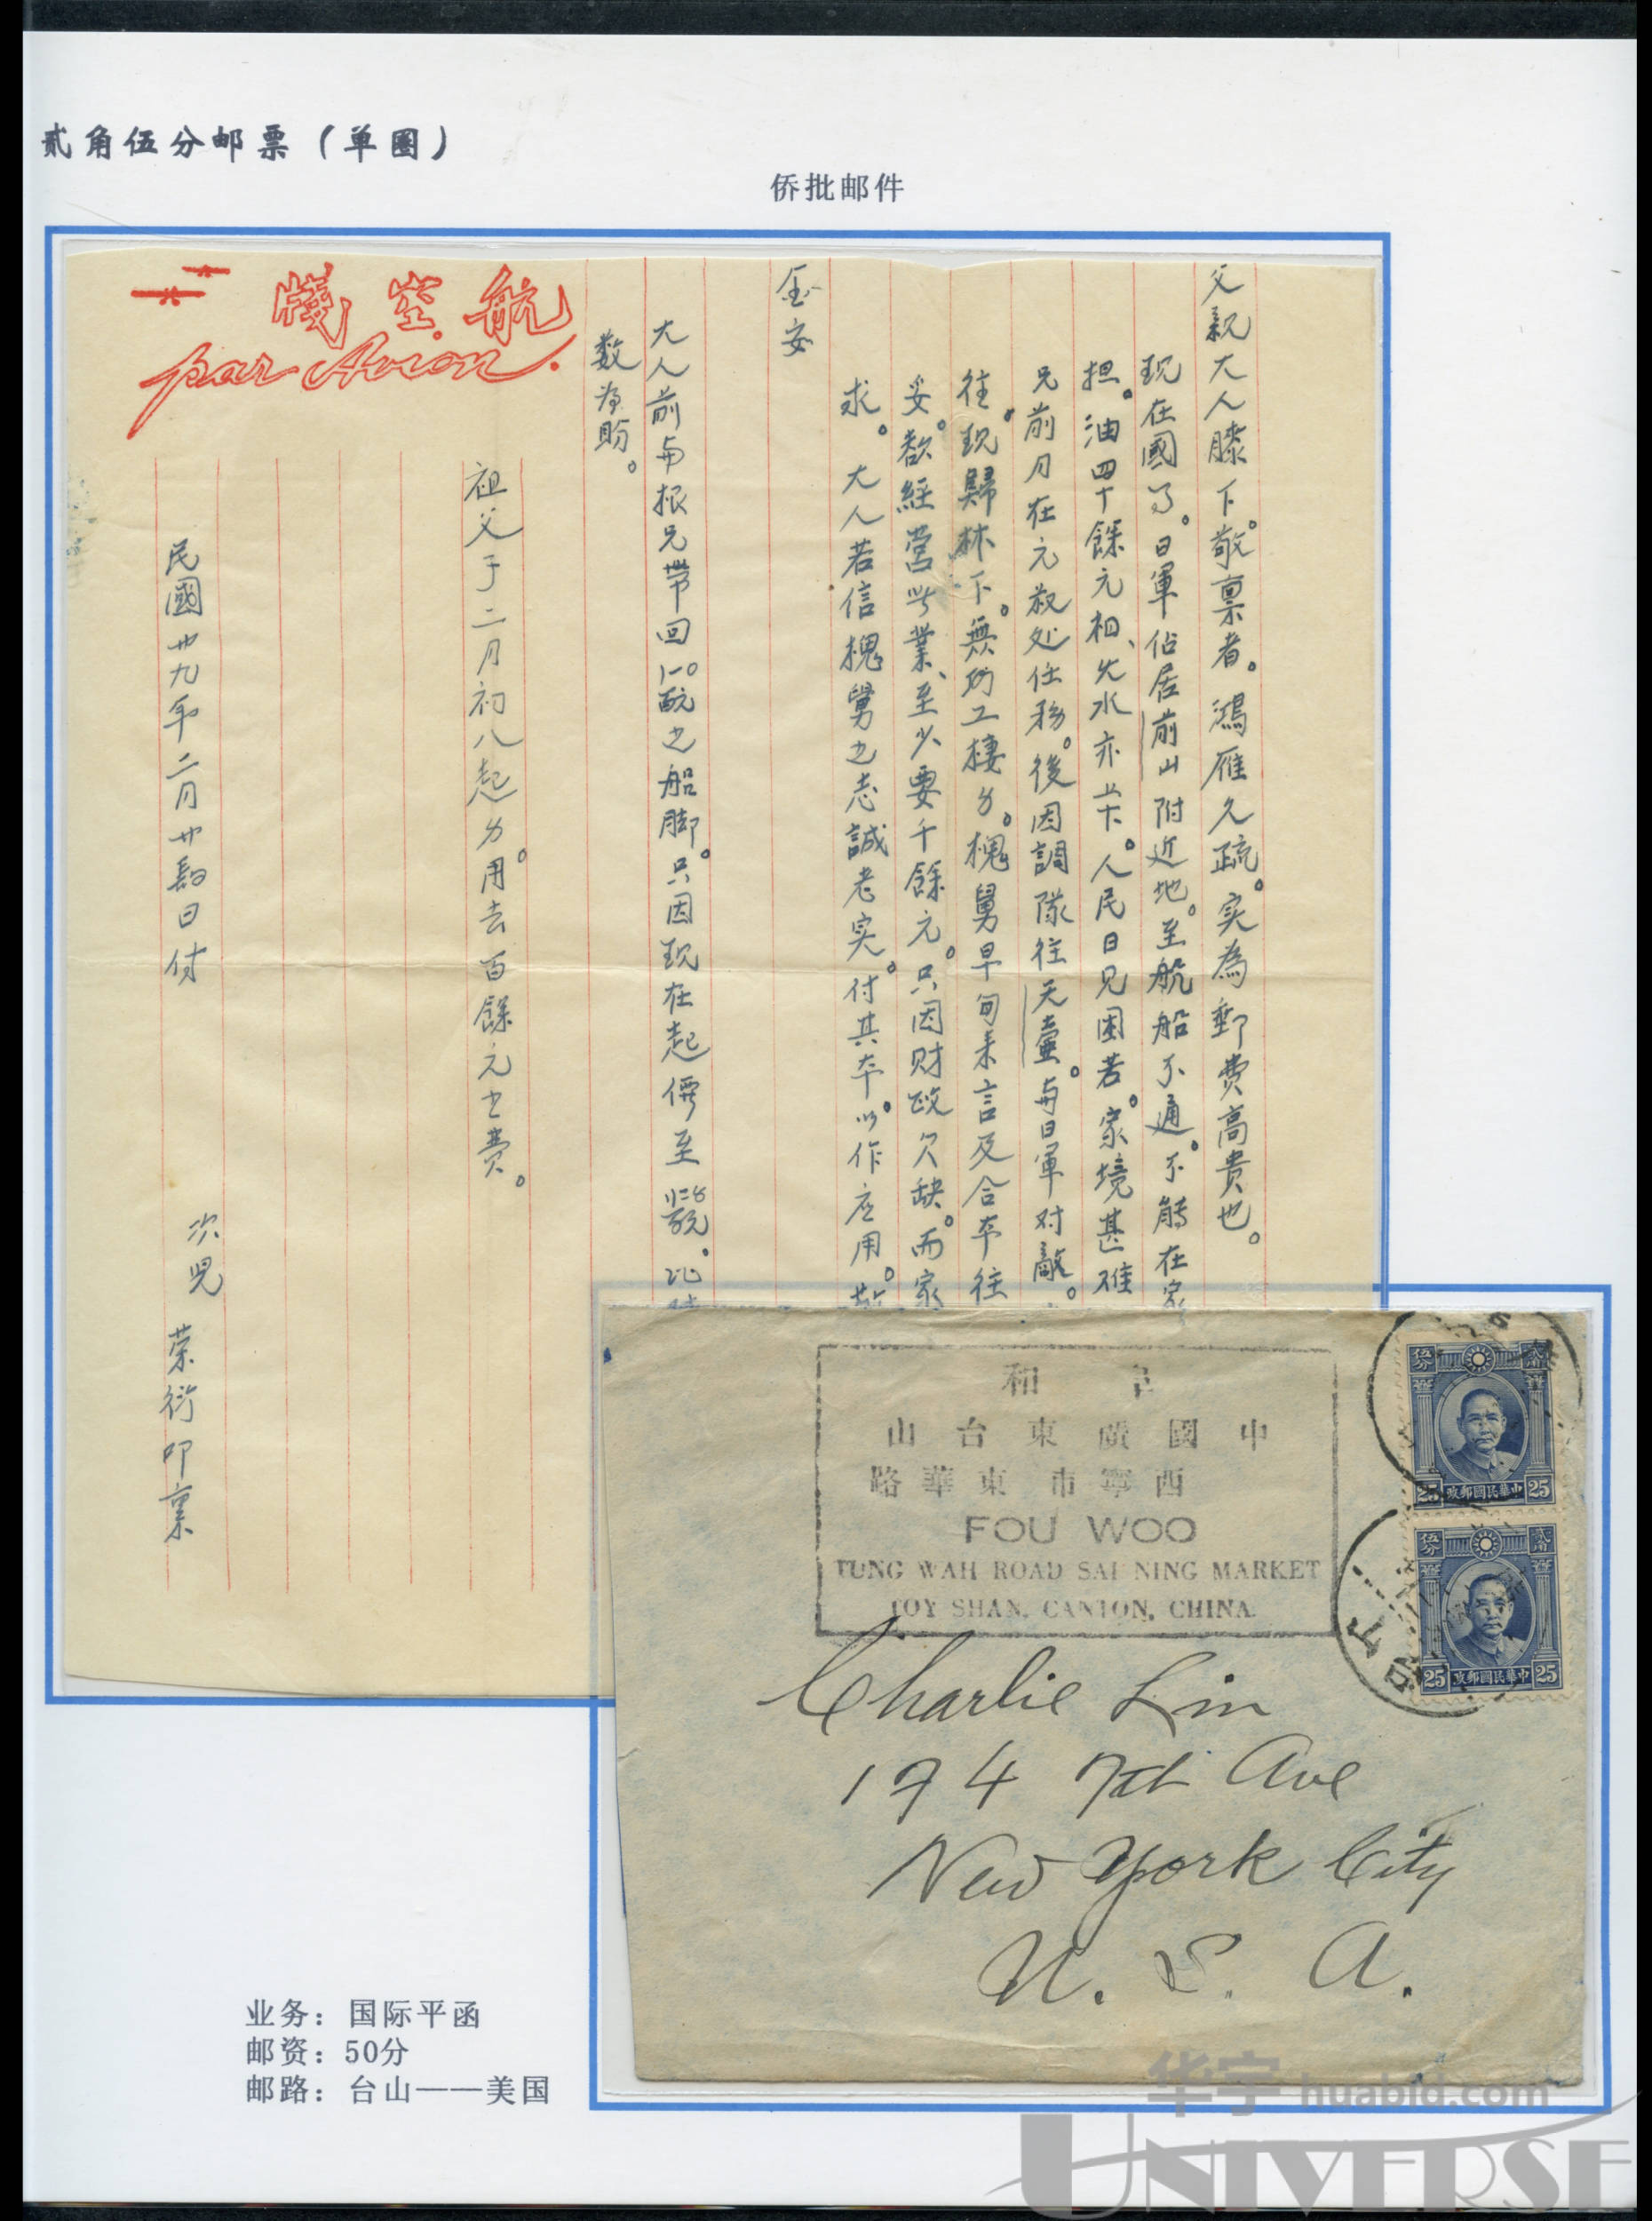 贰角伍分邮票（单圈）
侨批邮件
航空牋
par Avion.
父親大人膝下。敬禀者。鴻雁久疏。实為郵費高貴也。
现在國了。日軍佔居前山附近地。至航船不通。不能在家
担。油四十餘元担、火水亦卡。人民日见困苦。家境甚难
兄前月在元叔处任务。後因調隊往天臺。与日軍对敵。
往。现歸林下。無所工棲身。槐舅早旬来言及合本往
妥。欲經营此業、至少要千餘元。只因财政欠缺。而家
求。大人若信槐舅之志誠老实。付其本。以作应用。敬
金安
大人前与根兄帶回之船脚。只因现在起價至
数為盼。
祖父于二月初八起身用去百餘元之费。
民國廿九年二月廿四日付
次児 荣衍叩禀
阜和
中國廣東台山
西寧市東華路
FOU WOO
TUNG WAH ROAD SAI NING MARKET
TOY SHAN, CANTON, CHINA.
中華民國郵政
25 25
中華民國郵政
25 25
Charlie Lin
194 7th Ave
New York City
U. S. A.
业务：国际平函
邮资：50分
邮路：台山——美国
华宇 huabid.com
UNIVERSE